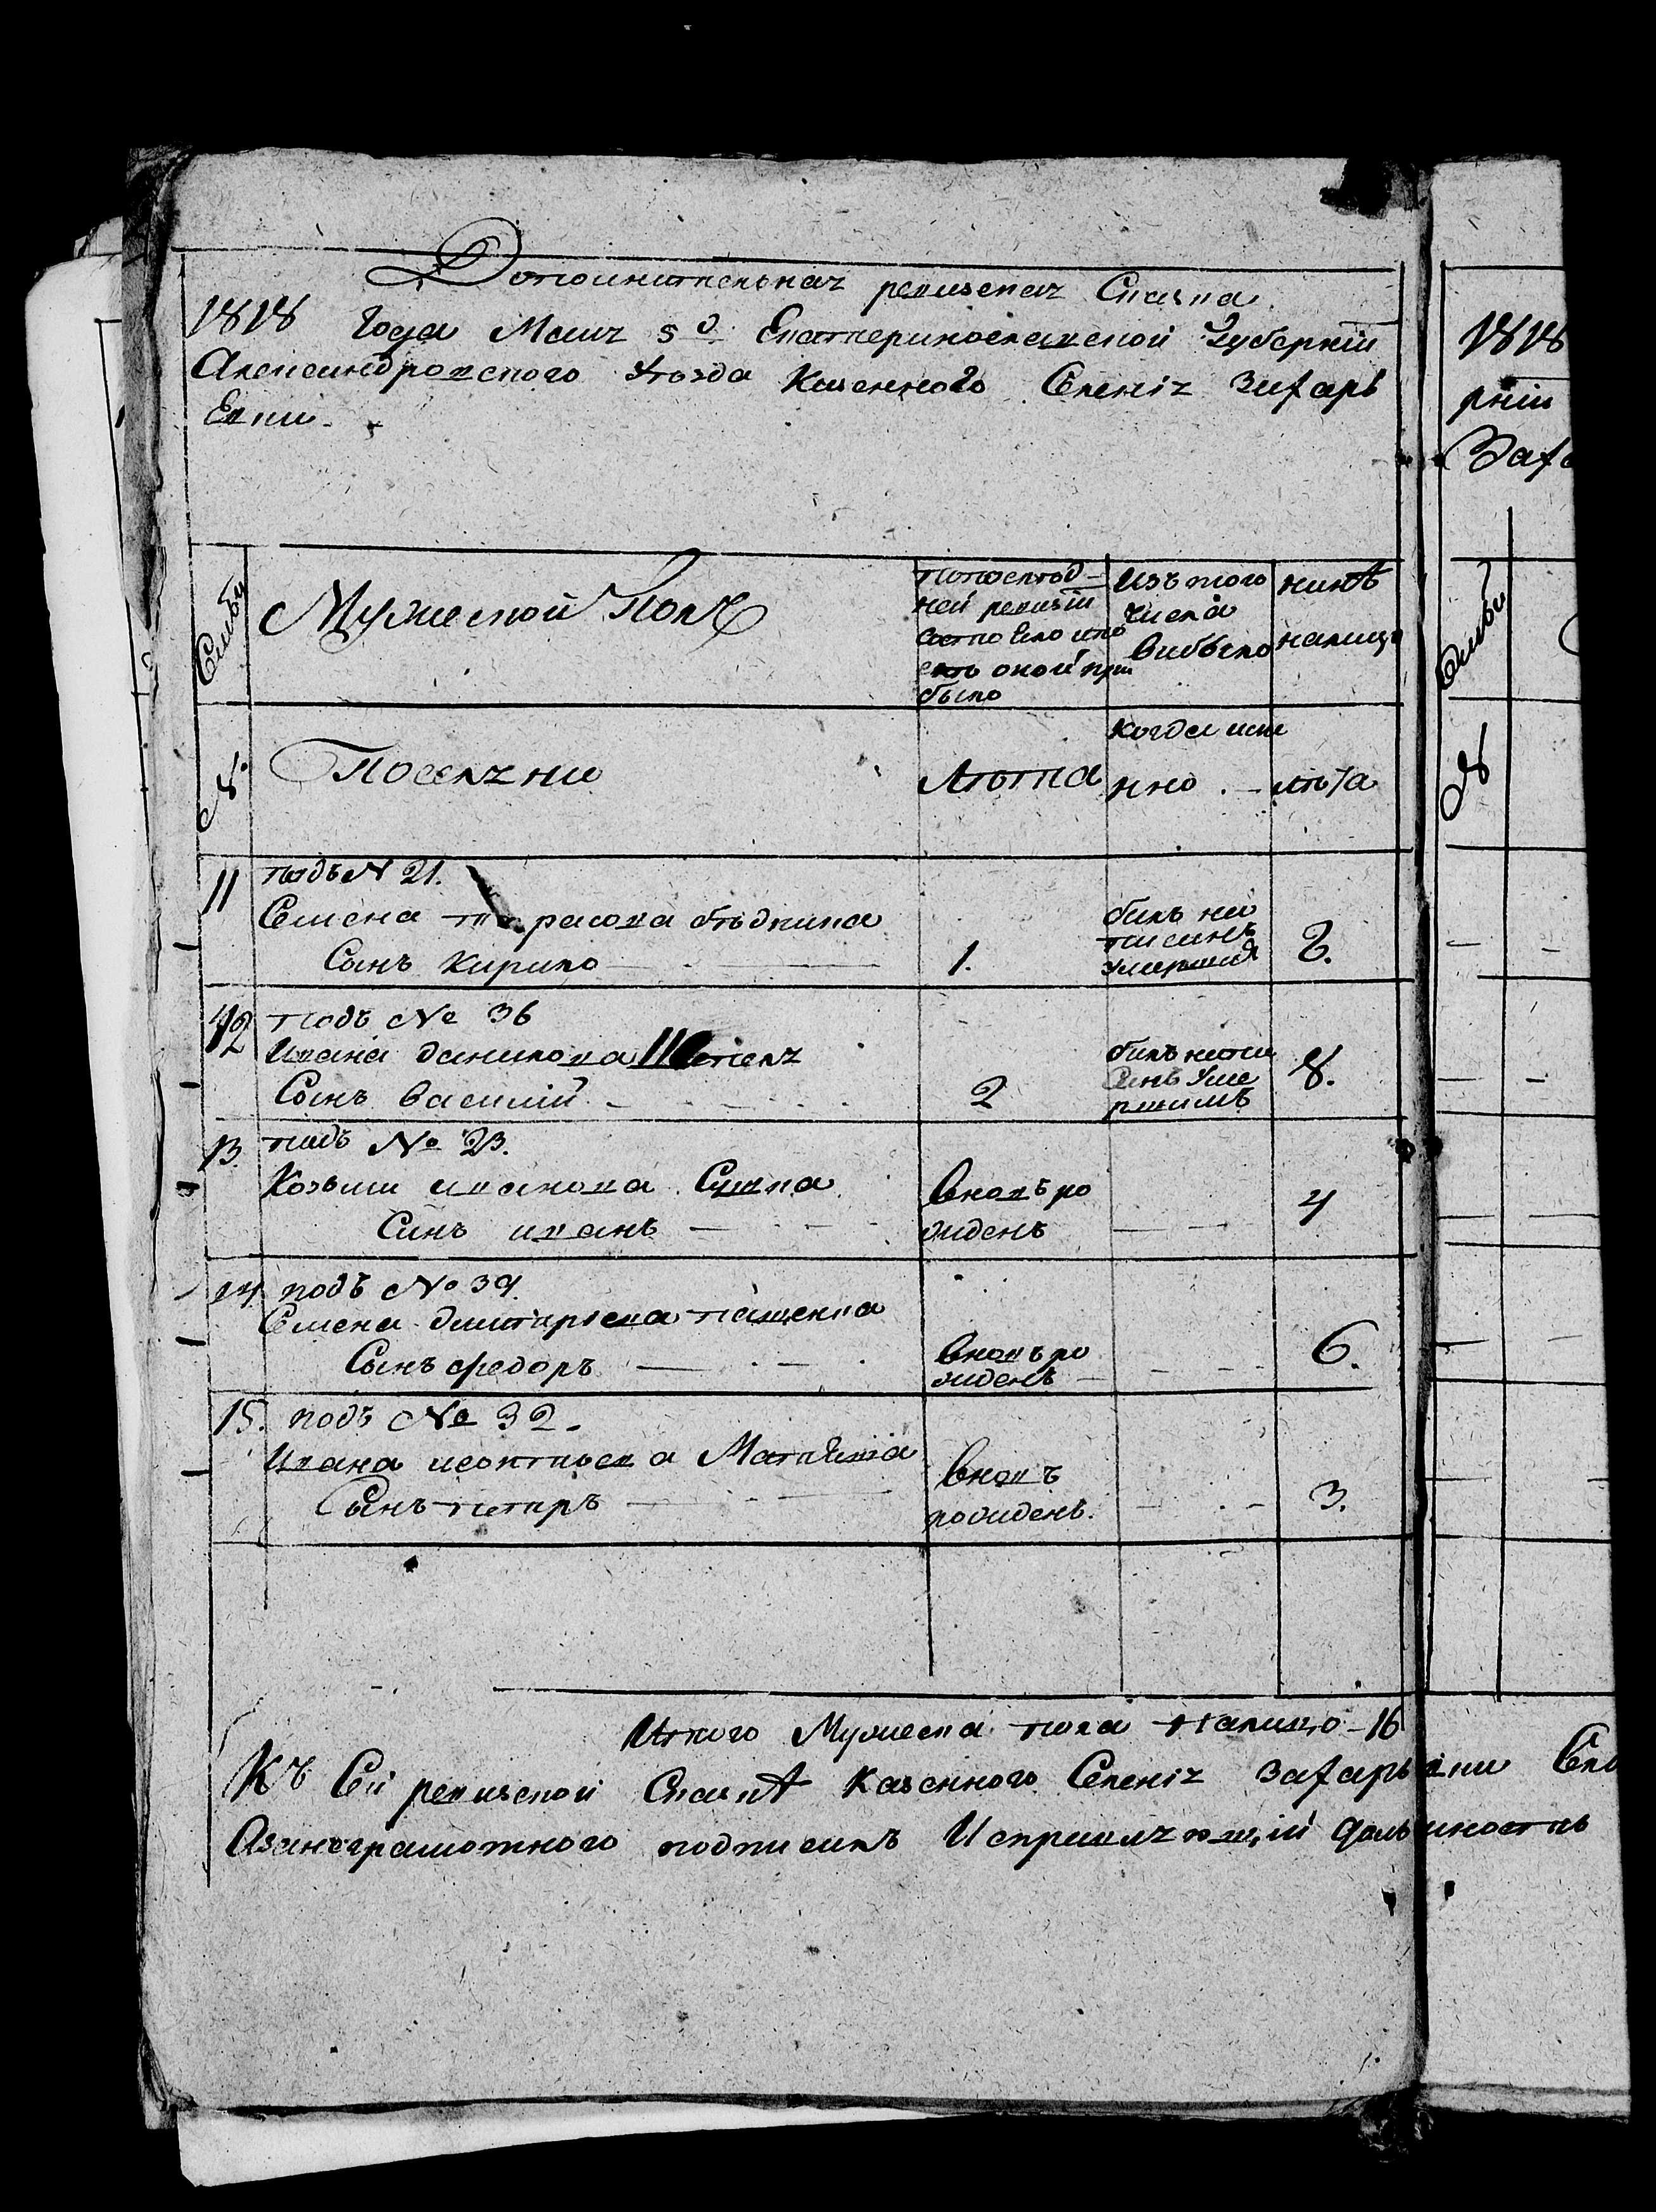 Дополнительная ревизская Сказка.
1818 Года Маия 5 д. Екатеринославской Губернии
Александровского Уѣзда Казенного Селенія Захарь
Евки
Семьи
Мужеской Полъ
по послѣд-
ней ревизіи
состояло и по
слѣ оной при
было
Изъ того
числа
выбыло
нинѣ
налицо
№
Поселяни
Лѣта
когда име
нно
лѣта
11
подъ № 21.
Семена тарасова бѣдника
Сынъ Кирило
1.
билъ на
писанъ
Умершим
8.
12
подъ № 36
Ивана данилова
Сынъ василий
2
билъ напи
санъ Уме
ршимъ
8.
13.
подъ № 23.
Козьми иванова Сушка
Синъ иванъ
вновъ ро
жиденъ
4
14.
подъ № 39.
Семена дмитриева пащенка
Сынъ федоръ
вновъ ро
жиденъ
6.
15.
подъ № 32.
Ивана леонтьева
Сынъ петръ
вновъ
рожиденъ.
3.
Итого Мужеска пола налицо - 16
Къ Сей ревизской Сказкѣ Казенного Селенія Захарьевки
Азанеграмотного подписалъ Исправляющій должность
1818
рніи
Заха
Семьи
№